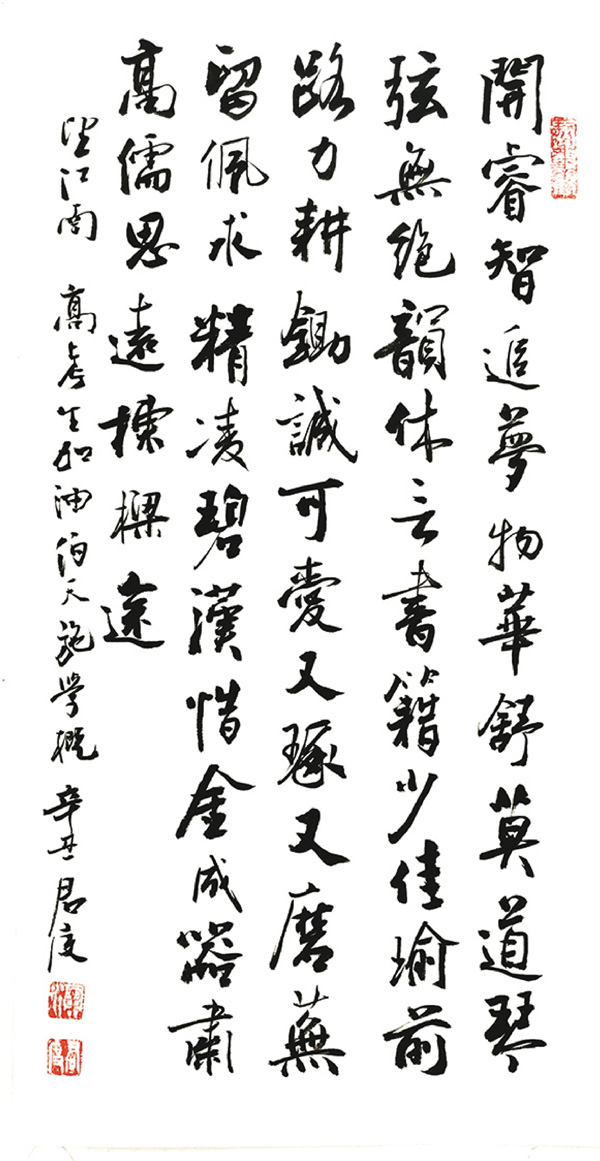 開睿智追夢物華舒莫道琴
弦無絶韻休言書籍少佳瑜前
路力耕鋤誠可愛又琢又磨蕪
留佩求精凌碧漢惜金成器肅
高儒思遠棟樑途
望江南 高考生加油 伯天施學概 辛丑君度